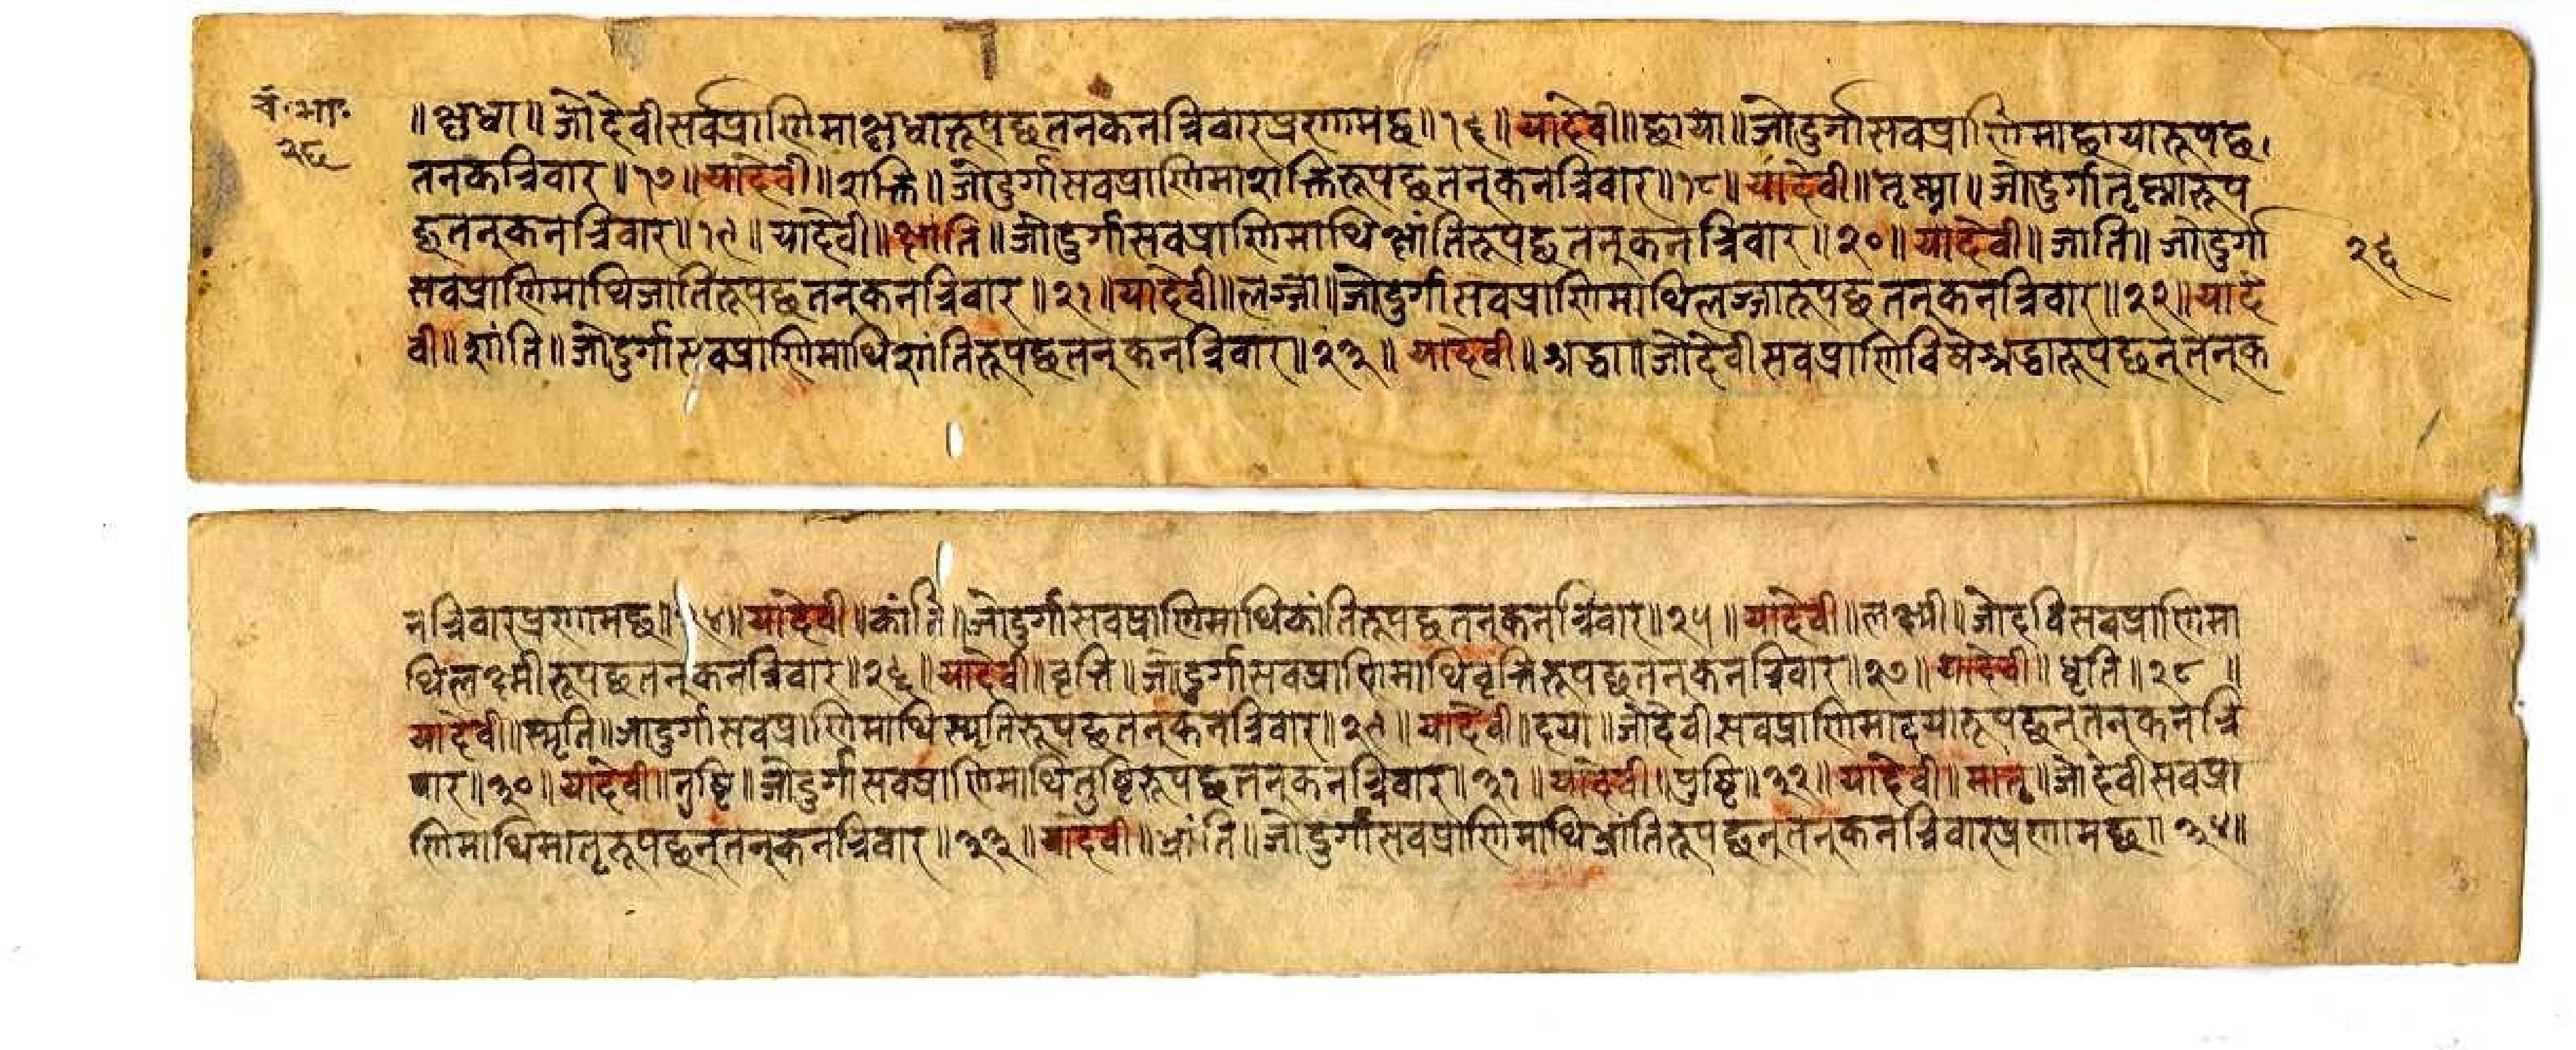 चं.भा.
२६
॥क्षुधा॥जोदेवीसर्वप्राणिमाक्षुधारूपछतनकनन्निवारप्रणामछ॥१६॥यादेवी॥छाया॥जोदुर्गासवप्राणिमाछायारूपछ।
तनकन्निवार॥१७॥यादेवी॥शक्ति॥जोदुर्गासवप्राणिमाशक्तिरूपछतनुकनन्निवार॥१८॥यादेवी॥तृष्णा॥जोदुर्गातृष्णारूप
छतनुकनन्निवार॥१९॥यादेवी॥क्षांति॥जोदुर्गासवप्राणिमाथिक्षांतिरूपछतनुकनन्निवार॥२०॥यादेवी॥जाति॥जोदुर्गा
सवप्राणिमाथिजातिरूपछतनुकनन्निवार॥२१॥यादेवी॥लज्जा॥जोदुर्गासवप्राणिमाथिलज्जारूपछतनुकनन्निवार॥२२॥यादे
वी॥शांति॥जोदुर्गासवप्राणिमाथिशांतिरूपछतनुकनन्निवार॥२३॥यादेवी॥श्रद्धा॥जोदेवीसवप्राणिविषेश्रद्धारूपछनूतनुक
२६
नन्निवारप्रणामछ॥२४॥यादेवी॥कांति॥जोदुर्गासवप्राणिमाथिकांतिरूपछतनुकनन्निवार॥२५॥यादेवी॥लक्ष्मी॥जोदेविसवप्राणिमा
थिलक्ष्मीरूपछतनुकनन्निवार॥२६॥यादेवी॥वृत्ति॥जोदुर्गासवप्राणिमाथिवृत्तिरूपछतनुकनन्निवार॥२७॥यादेवी॥धृति॥२८॥
यादेवी॥स्मृति॥जोदुर्गासवप्राणिमाथिस्मृतिरूपछतनुकनन्निवार॥२९॥यादेवी॥दया॥जोदेवीसवप्राणिमादयारूपछनूतनुकनन्नि
वार॥३०॥यादेवी॥तुष्टि॥जोदुर्गासवप्राणिमाथितुष्टिरूपछतनुकनन्निवार॥३१॥यादेवी॥पुष्टि॥३२॥यादेवी॥मातृ॥जोदेवीसवप्रा
णिमाथिमातृरूपछनूतनुकनन्निवार॥३३॥यादेवी॥भ्रांति॥जोदुर्गासवप्राणिमाथिभ्रांतिरूपछनूतनुकनन्निवारप्रणामछ॥३४॥